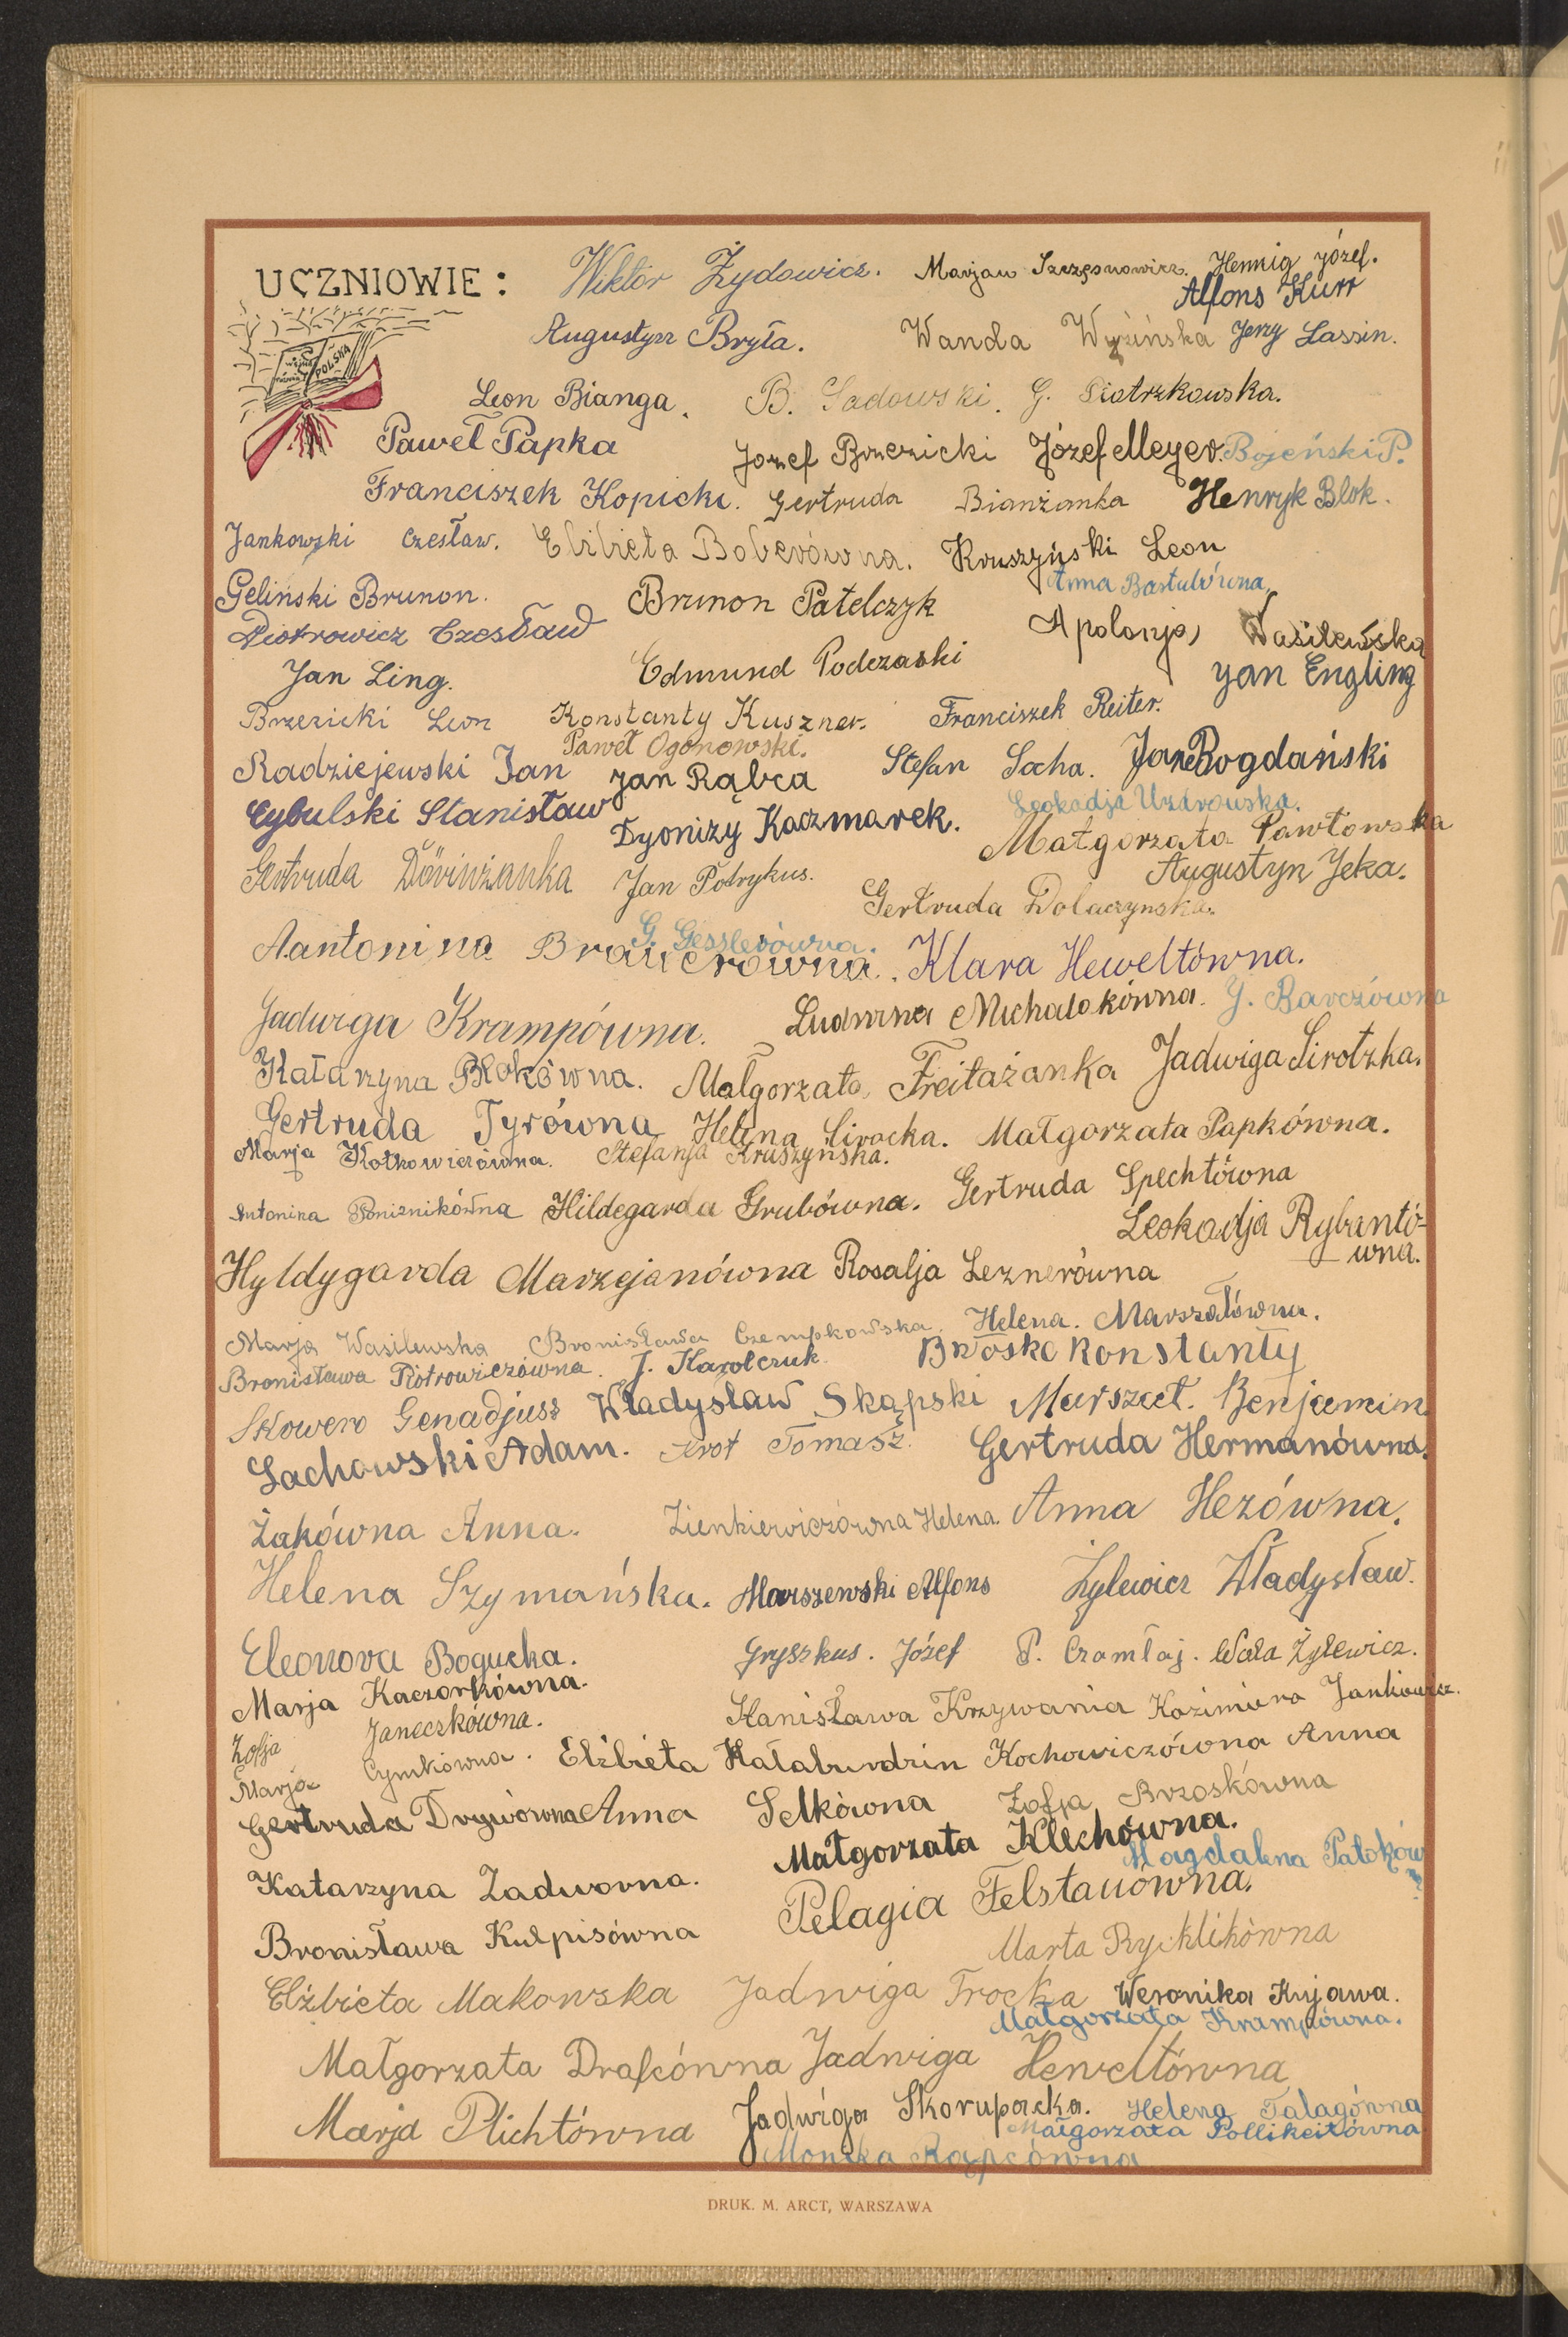 UCZNIOWIE: Wiktor Żydowicz. Marjan Szczęsnowicz. Hennig Józef.
Alfons Kurr
Augustyn Bryła. Wanda Wyżińska Jerzy Lassin.
POLSKA
Leon Bianga. B. Sadowski. G. Piotrzkowska.
Paweł Papka Jozef Brzezicki Józef Meyer. Bojeński P.
Franciszek Kopicki. Gertruda Bianżanka Henryk Blok.
Jankowski Czesław. Elżbieta Boberówna. Kruszyński Leon
Anna Bastubówna
Geliński Brunon. Brunon Patelczyk
Piotrowicz Czesław Apolonja Wasilewska
Jan Ling. Edmund Podczaski Jan Engling
Brzezicki Leon Konstanty Kuszner. Franciszek Reiter.
Paweł Ogonowski.
Radziejewski Jan Jan Rąbca Stefan Socha. Jan Bogdański
Cybulski Stanisław Dyonizy Kaczmarek. Leokadja Uzarowska.
Małgorzata Pawłowska
Gertruda Döringżanka Jan Potrykus. Augustyn Jeka.
Gertruda Dolaczynska.
G. Gesslerówna.
Aantonina Brauerówna. Klara Heweltówna.
Jadwiga Krampówna. Ludwina Michalakówna. J. Barczówna
Katarzyna Blokówna. Małgorzata Freitażanka Jadwiga Sirotzka.
Gertruda Tyrówna Helena Sirocka. Małgorzata Papkówna.
Marja Kotkowiczówna. Stefanja Kruszyńska.
Antonina Poniznikówna Hildegarda Grubówna. Gertruda Spechtówna
Leokadja Rybantó-
wna.
Hyldygarda Marzejanówna Rosalja Leznerówna
Marja Wasilewska Bronisława Czempkowska. Helena. Marszałówna.
Bronisława Piotrowiczówna. J. Karolczuk. Brzosko Konstanty
Skowero Genadjusz Władysław Skąpski Marszał. Benjamin
Lachowski Adam. Krot Tomasz. Gertruda Hermanówna.
Żakówna Anna. Zienkiewiczówna Helena. Anna Hezówna.
Helena Szymańska. Marszewski Alfons Żylewicz Władysław.
Eleonora Bogucka. Gryszkus. Józef P. Czamłaj. Wala Żylewicz.
Marja Kaczorkówna. Stanisława Krzywania Kazimiera Jankowicz.
Zofja Janeczkówna.
Marja Cymkówna. Elżbieta Hałaburdzin Kochowiczówna Anna
Gertruda Drywówna Anna Selkówna Zofja Brzoskówna
Małgorzata Klechówna.
Magdalena Patoków
na
Katarzyna Zadworna. Pelagia Felstauówna.
Bronisława Kulpisówna Marta Rychlikówna
Elżbieta Makowska Jadwiga Trocka Weronika Kujawa.
Małgorzata Krampówna.
Małgorzata Drafcówna Jadwiga Heweltówna
Marja Plichtówna Jadwiga Skorupacka. Helena Talagówna
Małgorzata Pollikeitówna
Monika Rąpcówna
DRUK. M. ARCT, WARSZAWA